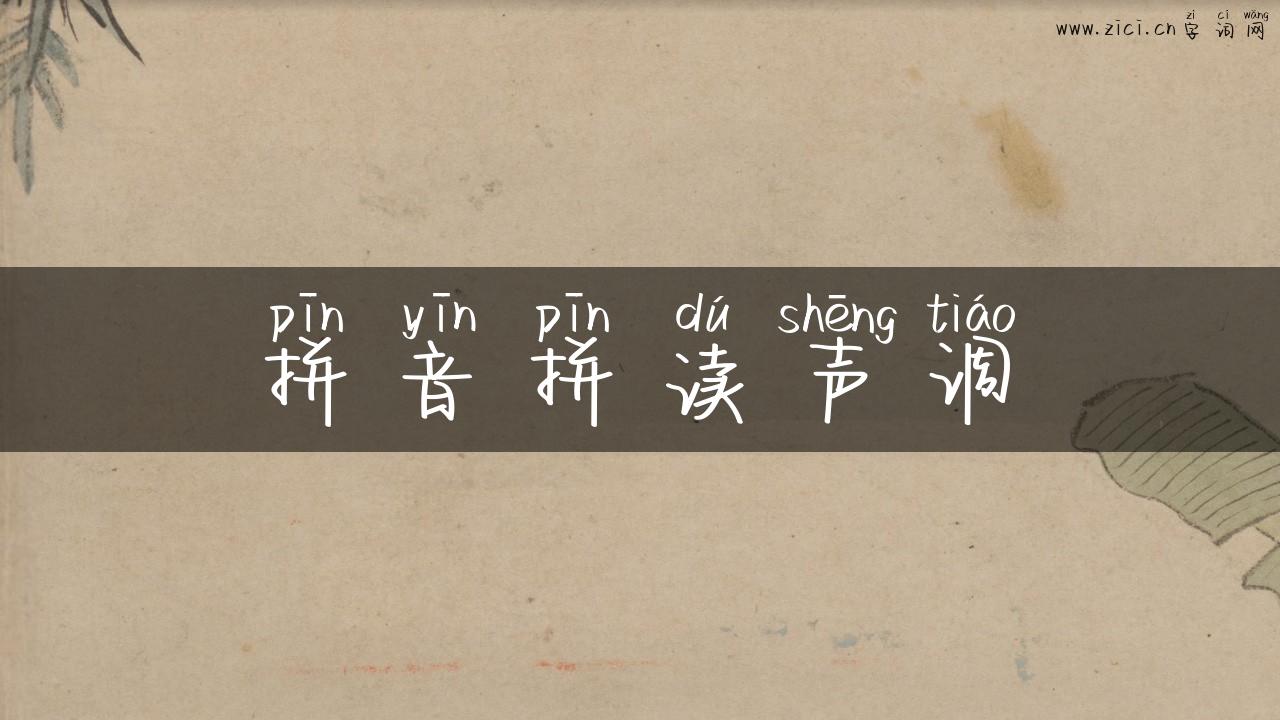 zì cí wǎng
www.zici.cn 字 词 网
pīn yīn pīn dú shēng tiáo
拼 音 拼 读 声 调